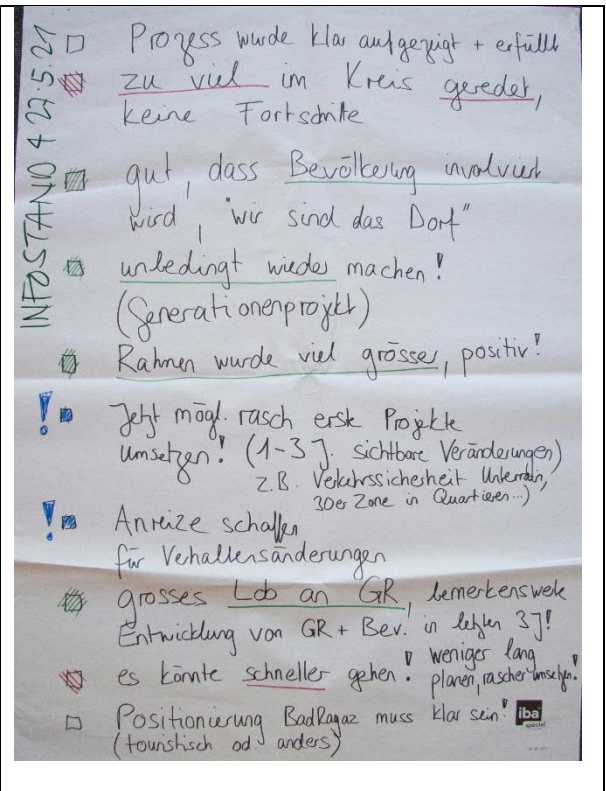 INFOSTAND 4 27.5.21
Prozess wurde klar aufgezeigt + erfüllt
zu viel im Kreis geredet,
keine Fortschritte
gut, dass Bevölkerung involviert
wird, "wir sind das Dorf"
unbedingt wieder machen!
(Generationenprojekt)
Rahmen wurde viel grösser, positiv!
! Jetzt mögl. rasch erste Projekte
umsetzen! (1-3 J. sichtbare Veränderungen)
z.B. Verkehrssicherheit Unterrain,
30er Zone in Quartieren...)
! Anreize schaffen
für Verhaltensänderungen
grosses Lob an GR, bemerkenswerte
Entwicklung von GR + Bev. in letzten 3J!
es könnte schneller gehen! weniger lang
planen, rascher umsetzen!
Positionierung BadRagaz muss klar sein!
(touristisch od. anders)
iba